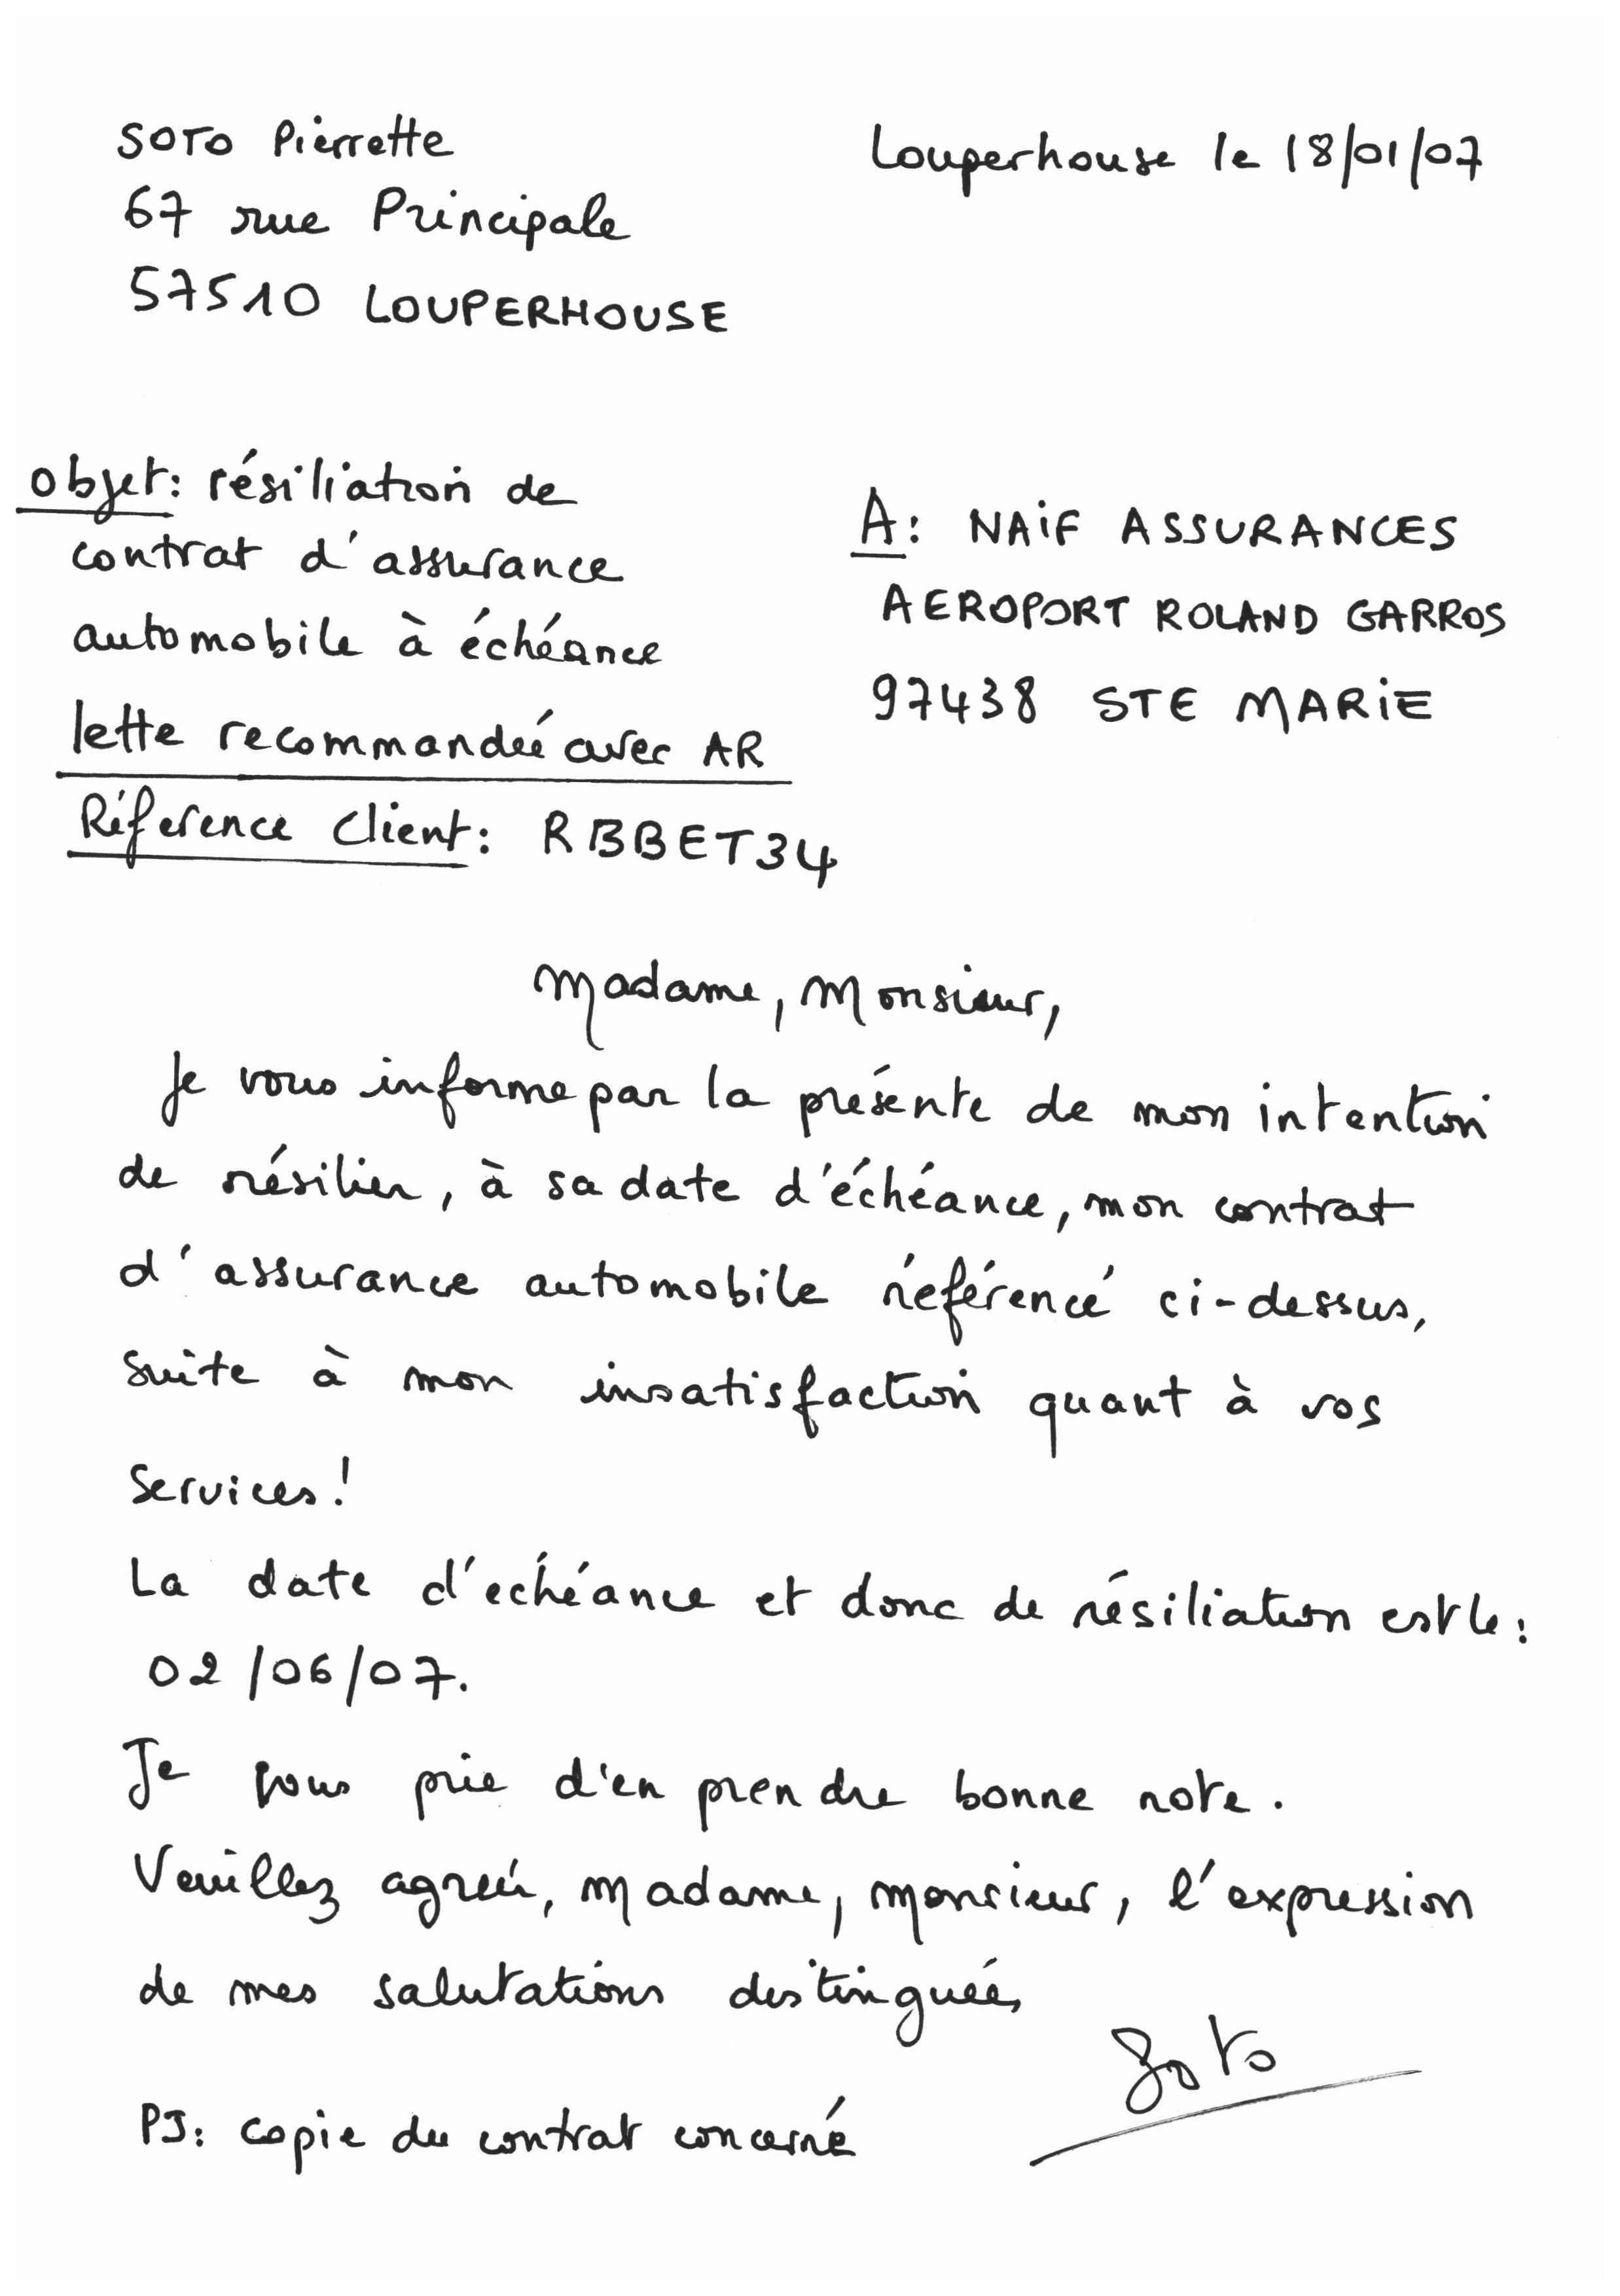 SOTO Pierrette
67 rue Principale
57510 LOUPERHOUSE
Louperhouse le 18/01/07
objet: résiliation de
contrat d'assurance
automobile à échéance
lettre recommandée avec AR
Référence Client: RBBET34
A: NAiF ASSURANCES
AEROPORT ROLAND GARROS
97438 STE MARiE
Madame, Monsieur,
Je vous informe par la présente de mon intention
de résilier, à sa date d'échéance, mon contrat
d'assurance automobile référencé ci-dessus,
suite à mon insatisfaction quant à vos
services!
La date d'echéance et donc de résiliation est le:
02/06/07.
Je vous prie d'en prendre bonne note.
Veuillez agréer, Madame, Monsieur, l'expression
de mes salutations distinguées
Soto
PJ: copie du contrat concerné